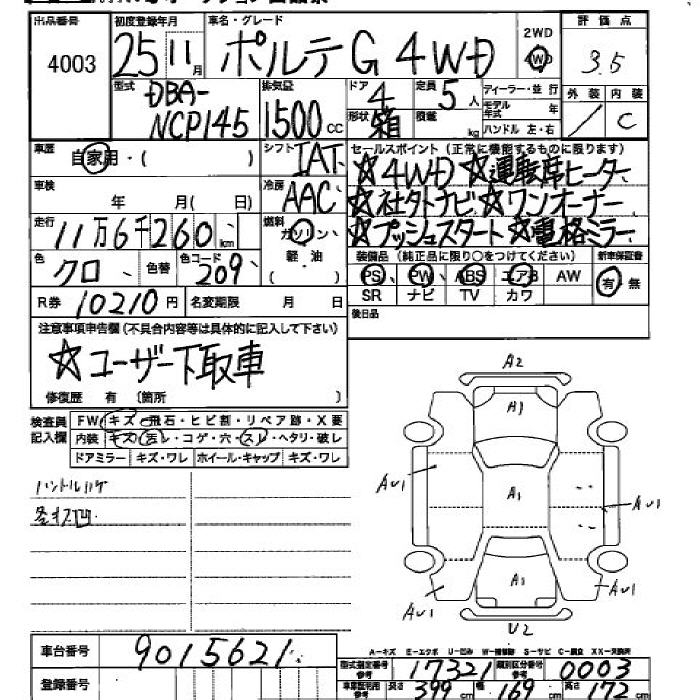 出品番号 初度登録年月 車名・グレード 2WD 評価点
4003 25 11月 ポルテG 4WD 4WD 3.5
型式 DBA-NCP145 排気量 1500cc ドア 4 形状 箱 定員 5人 積載 kg ディーラー・並行 モデル年式 年 ハンドル 左・右 外装 / 内装 C
車歴 自家用・( ) シフト IAT セールスポイント (正常に機能するものに限ります)
☆4WD ☆運転席ヒーター
車検 年 月( 日) 冷房 AAC ☆社外ナビ☆ワンオーナー
走行 11万6千260km 燃料 ガソリン、 ☆プッシュスタート☆電格ミラー
軽・油
( )
色 クロ 色替 色コード 209 装備品 (純正品に限り○をつけてください) 新車保証書
PS PW ABS エアB AW 有・無
SR ナビ TV カワ
R券 10210円 名変期限 月 日
後日品
注意事項申告欄(不具合内容等は具体的に記入して下さい)
☆ユーザー下取車
修復歴 有 〔箇所 〕
検査員記入欄 FW キズ・飛石・ヒビ割・リペア跡・X要
内装 キズ・汚レ・コゲ・穴・スレ・ヘタリ・破レ
ドアミラー キズ・ワレ ホイール・キャップ キズ・ワレ
ハンドルハゲ
各キズ凹
A2
A1
AU1 A1 AU1
A1
AU1 AU1
U2
車台番号 9015621
A-キズ E-エクボ U-凹み W-補修跡 S-サビ C-腐立 XX-交換済
登録番号
型式指定番号 参考 17321 類別区分番号 参考 0003
車庫証明用 参考 長さ 399cm 幅 169cm 高さ 172cm